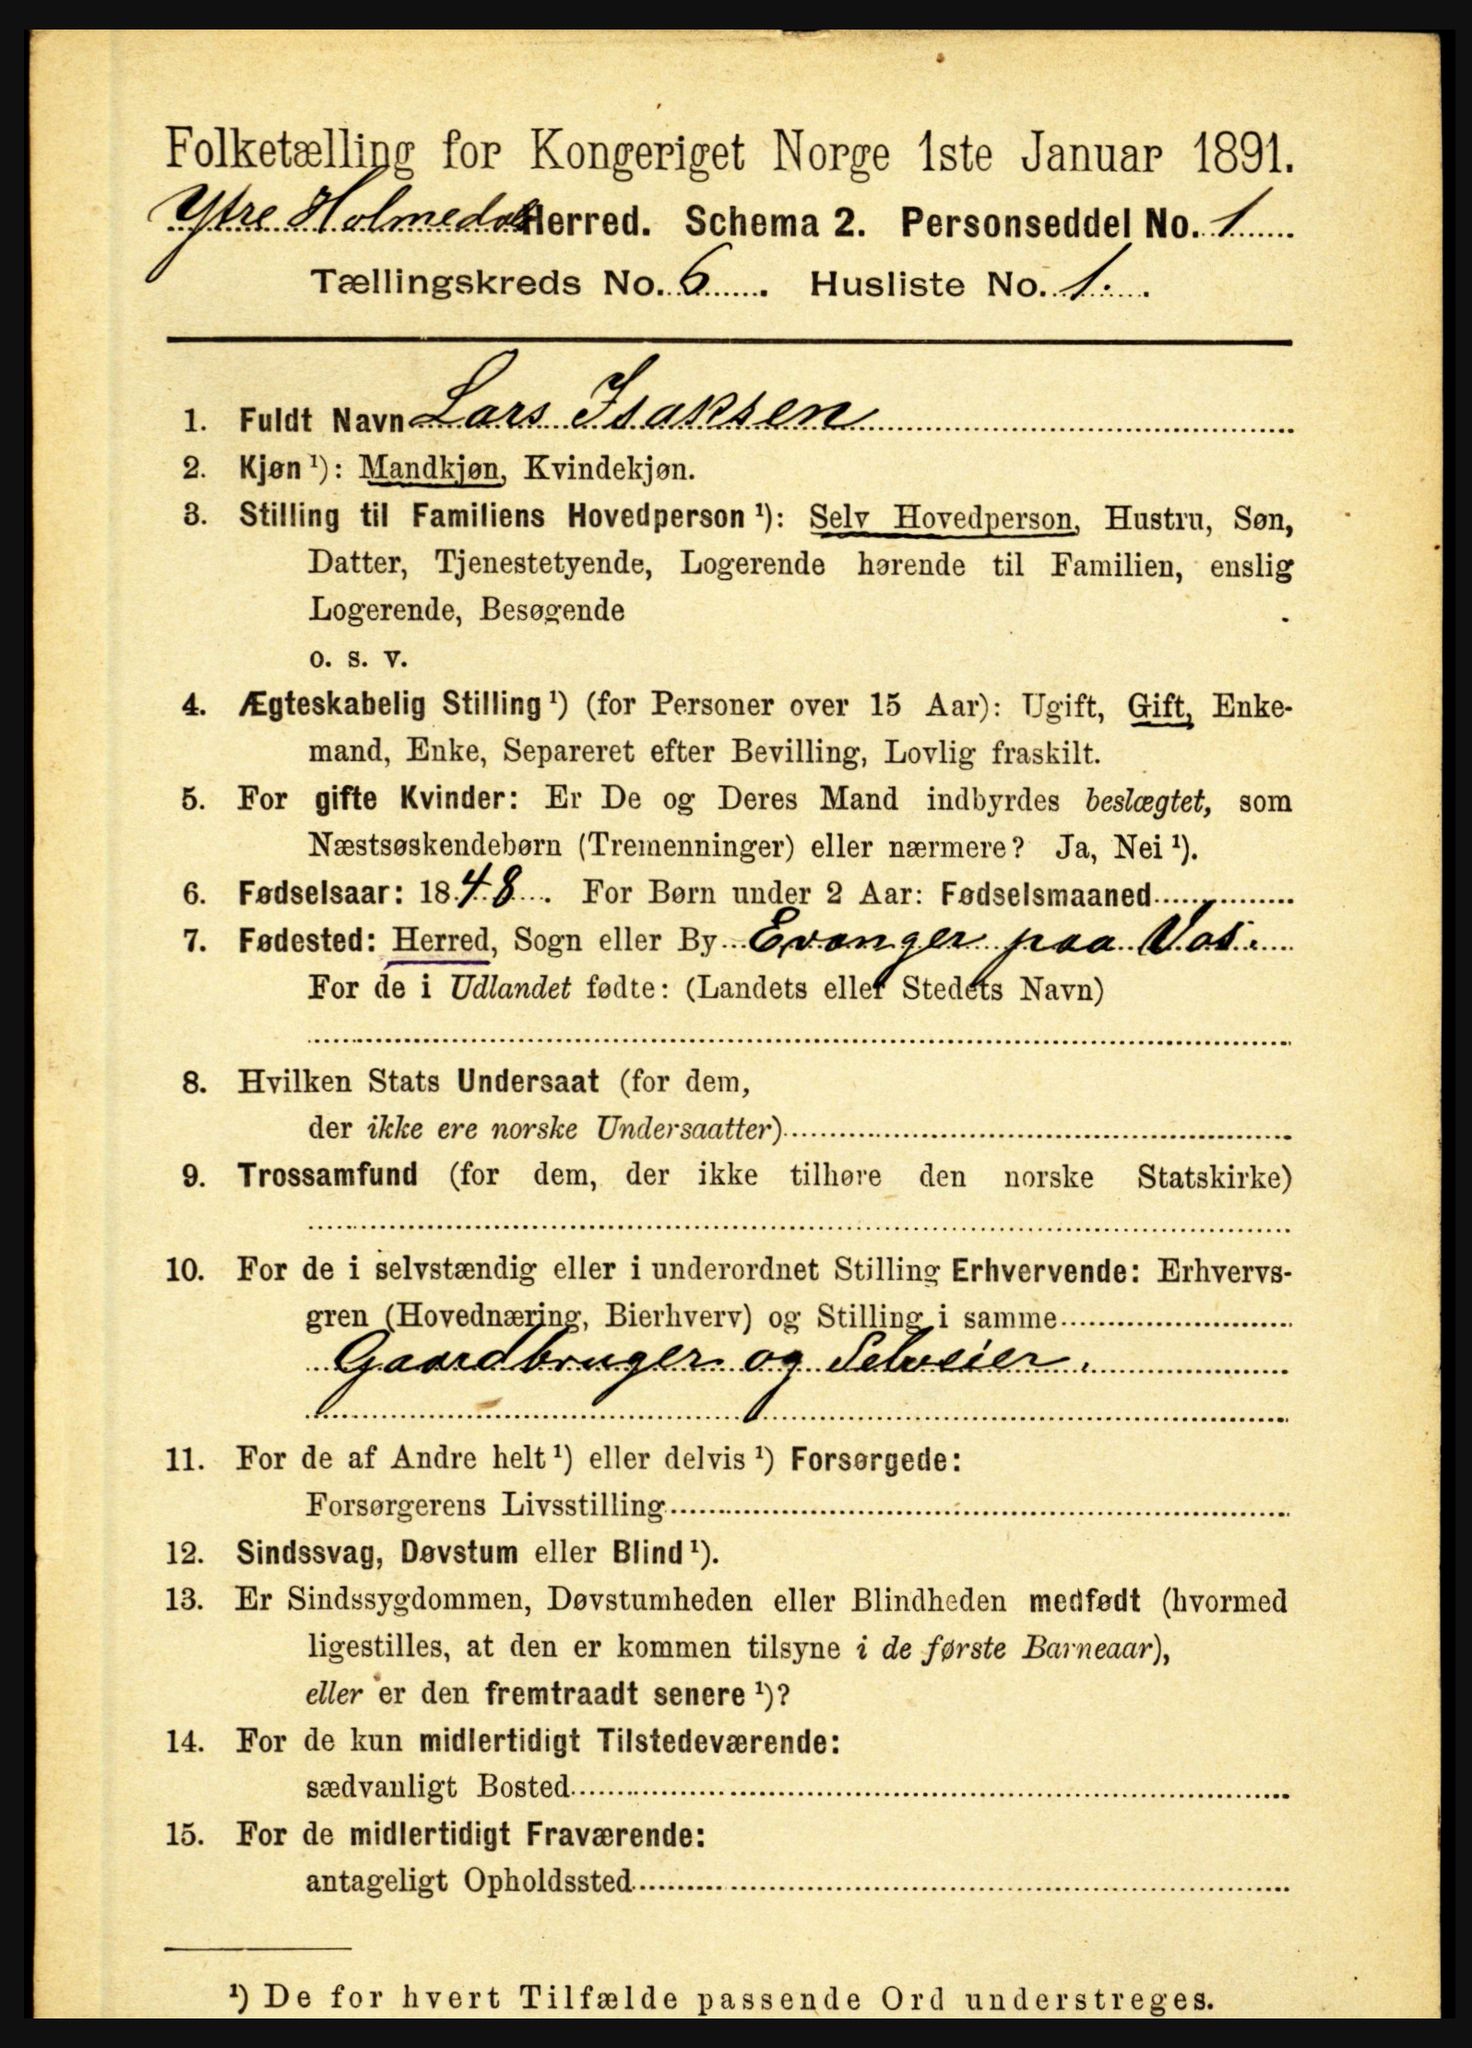 Folketælling for Kongeriget Norge 1ste Januar 1891.
Ytre Holmedals Herred. Schema 2. Personseddel No. 1
Tællingskreds No. 6. Husliste No. 1.
1. Fuldt Navn Lars Isaksen
2. Kjøn ¹): Mandkjøn, Kvindekjøn.
3. Stilling til Familiens Hovedperson ¹): Selv Hovedperson, Hustru, Søn,
Datter, Tjenestetyende, Logerende hørende til Familien, enslig
Logerende, Besøgende
o. s. v.
4. Ægteskabelig Stilling ¹) (for Personer over 15 Aar): Ugift, Gift, Enke-
mand, Enke, Separeret efter Bevilling, Lovlig fraskilt.
5. For gifte Kvinder: Er De og Deres Mand indbyrdes beslægtet, som
Næstsøskendebørn (Tremenninger) eller nærmere? Ja, Nei ¹).
6. Fødselsaar: 1848. For Børn under 2 Aar: Fødselsmaaned
7. Fødested: Herred, Sogn eller By Evanger paa Vos.
For de i Udlandet fødte: (Landets eller Stedets Navn)
8. Hvilken Stats Undersaat (for dem,
der ikke ere norske Undersaatter)
9. Trossamfund (for dem, der ikke tilhøre den norske Statskirke)
10. For de i selvstændig eller i underordnet Stilling Erhvervende: Erhvervs-
gren (Hovednæring, Bierhverv) og Stilling i samme
Gaardbruger og Selveier.
11. For de af Andre helt ¹) eller delvis ¹) Forsørgede:
Forsørgerens Livsstilling
12. Sindssvag, Døvstum eller Blind ¹).
13. Er Sindssygdommen, Døvstumheden eller Blindheden medfødt (hvormed
ligestilles, at den er kommen tilsyne i de første Barneaar),
eller er den fremtraadt senere ¹)?
14. For de kun midlertidigt Tilstedeværende:
sædvanligt Bosted
15. For de midlertidigt Fraværende:
antageligt Opholdssted
¹) De for hvert Tilfælde passende Ord understreges.